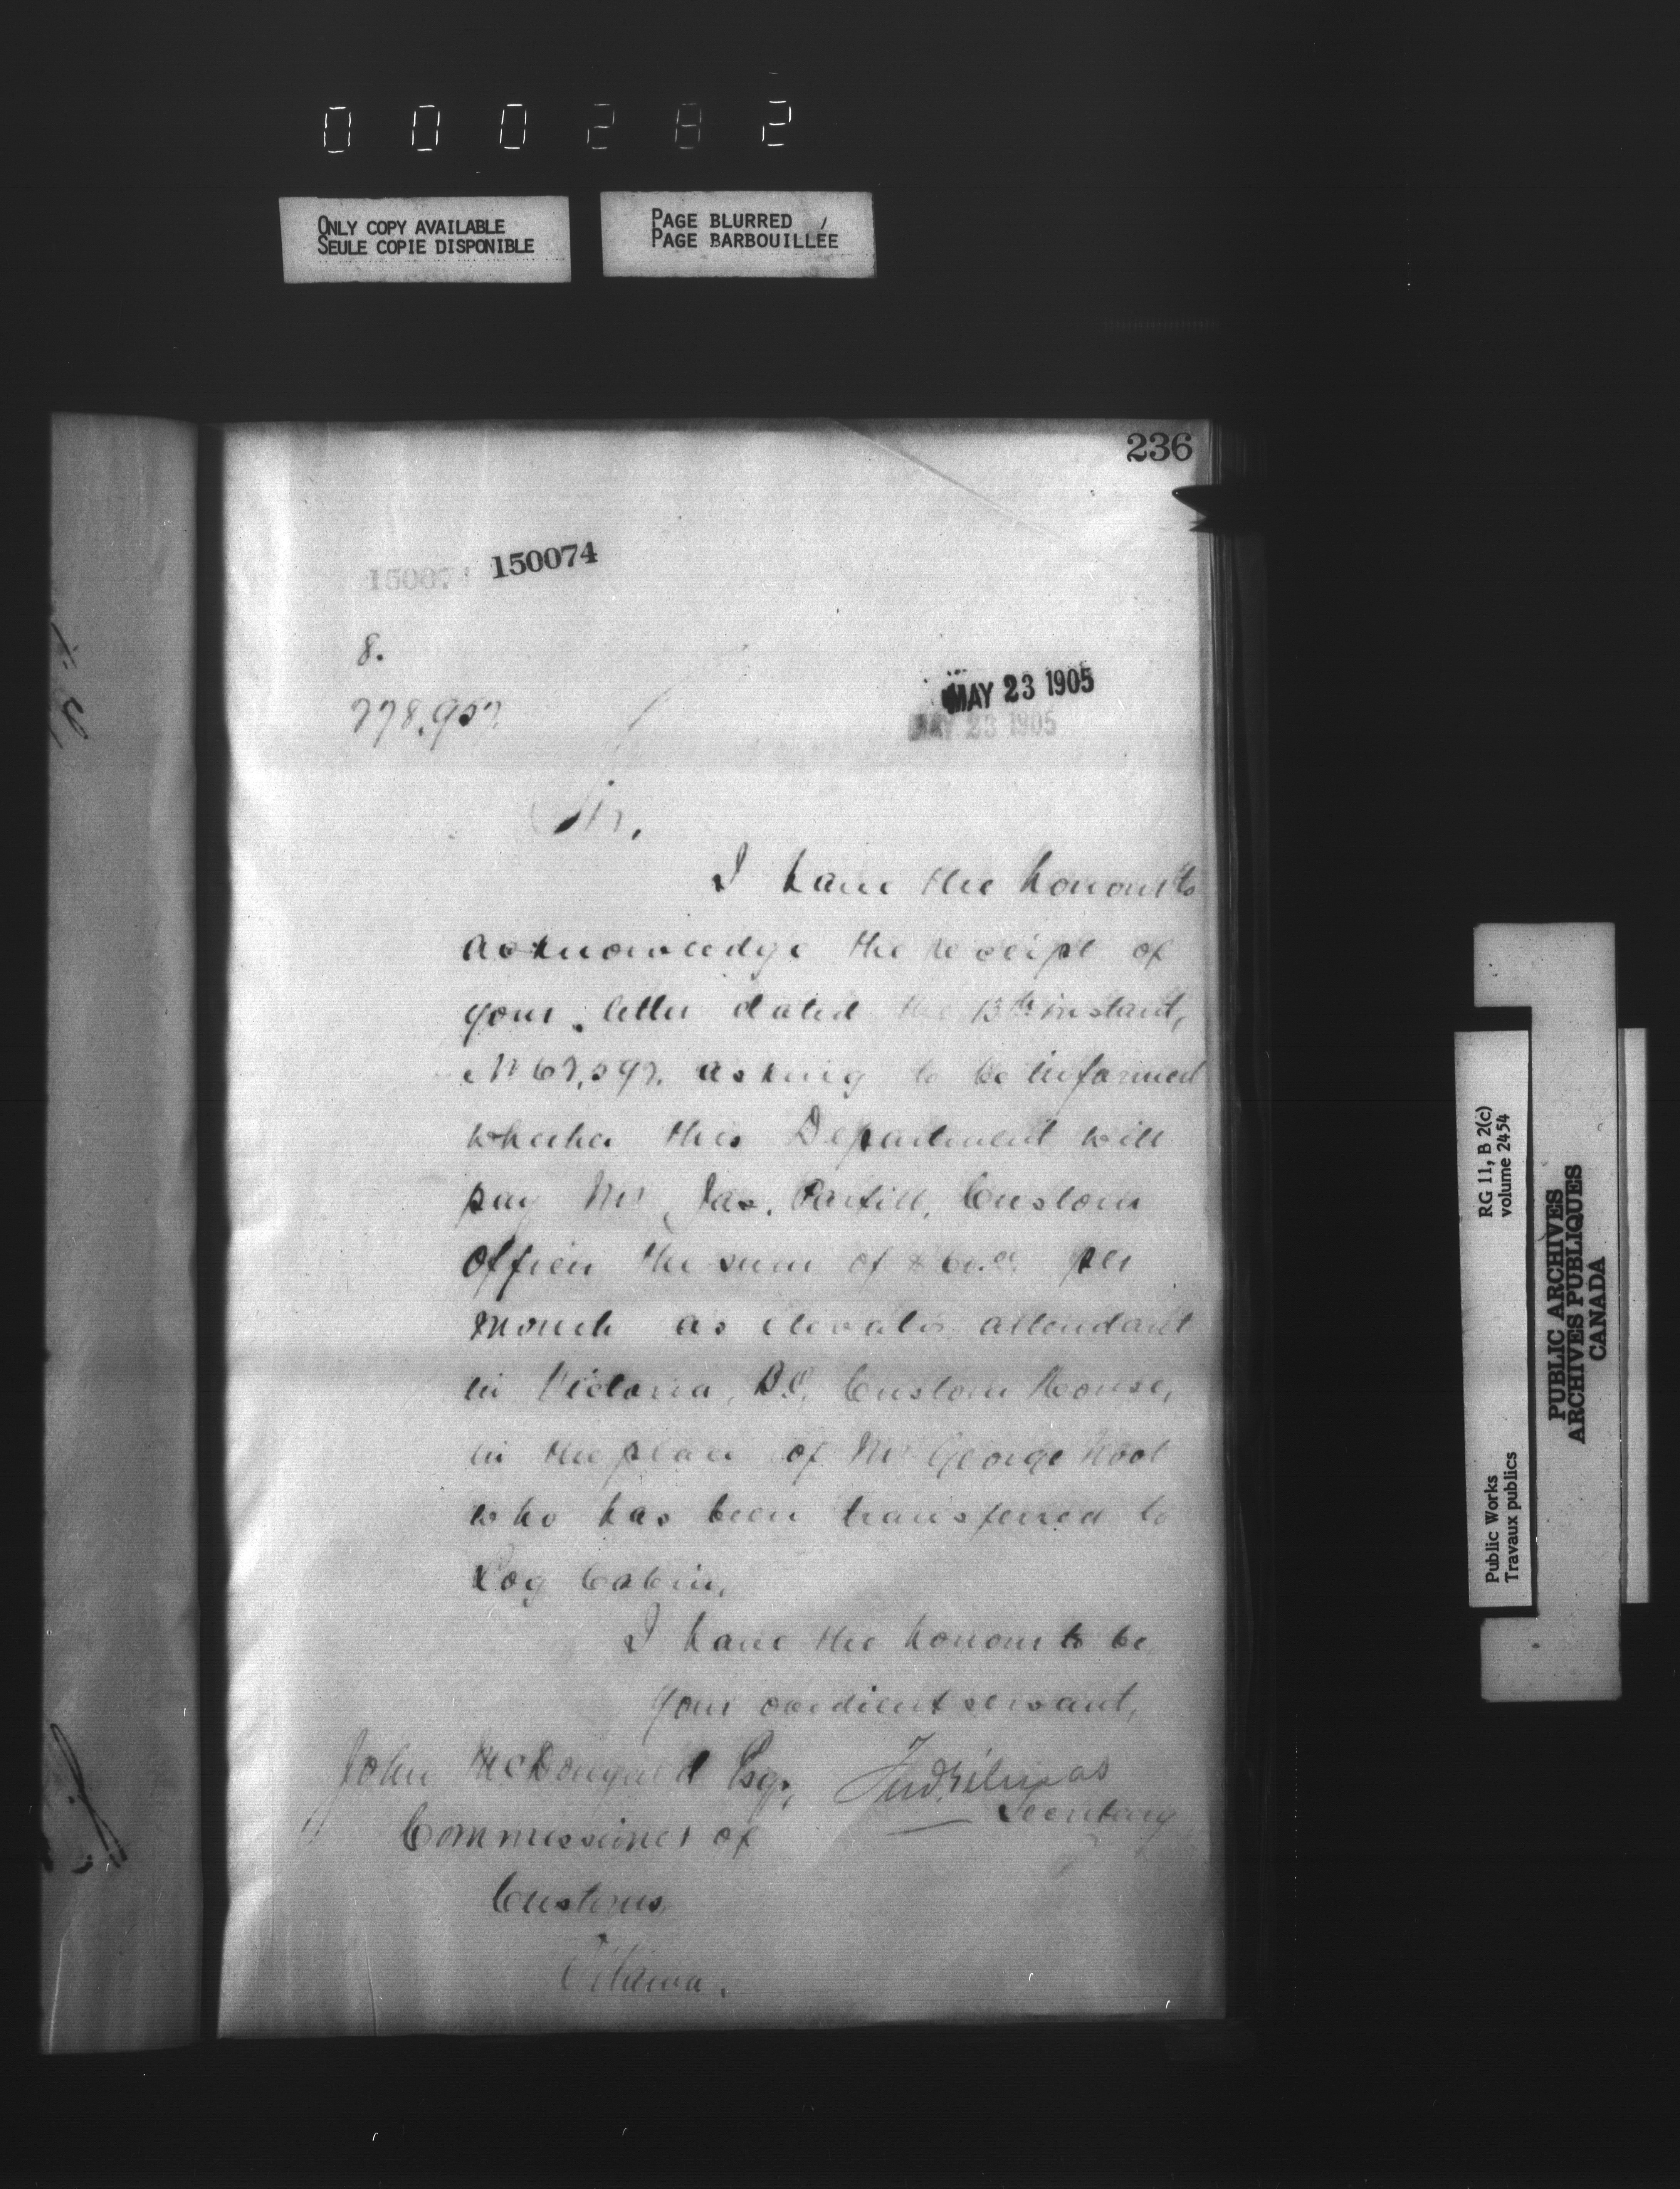 000282
ONLY COPY AVAILABLE
SEULE COPIE DISPONIBLE
PAGE BLURRED
PAGE BARBOUILLÉE
236
150074
8.
MAY 23 1905
MAY 23 1905
Sir,
I have the honour to
acknowledge the receipt of
your letter dated the 13th instant,
asking to be informed
whether this Department will
pay Mr Jas. Custom
Officer the sum of per
month as elevator attendant
in Victoria, B.C. Custom House,
in the place of Mr George
who has been transferred to
Log Cabin,
I have the honour to be
Your obedient servant,
John McDougald Esq.,
Secretary
Commissioner of
Customs,
Ottawa.
RG 11, B 2(c)
volume 2454
Public Works
Travaux publics
PUBLIC ARCHIVES
ARCHIVES PUBLIQUES
CANADA